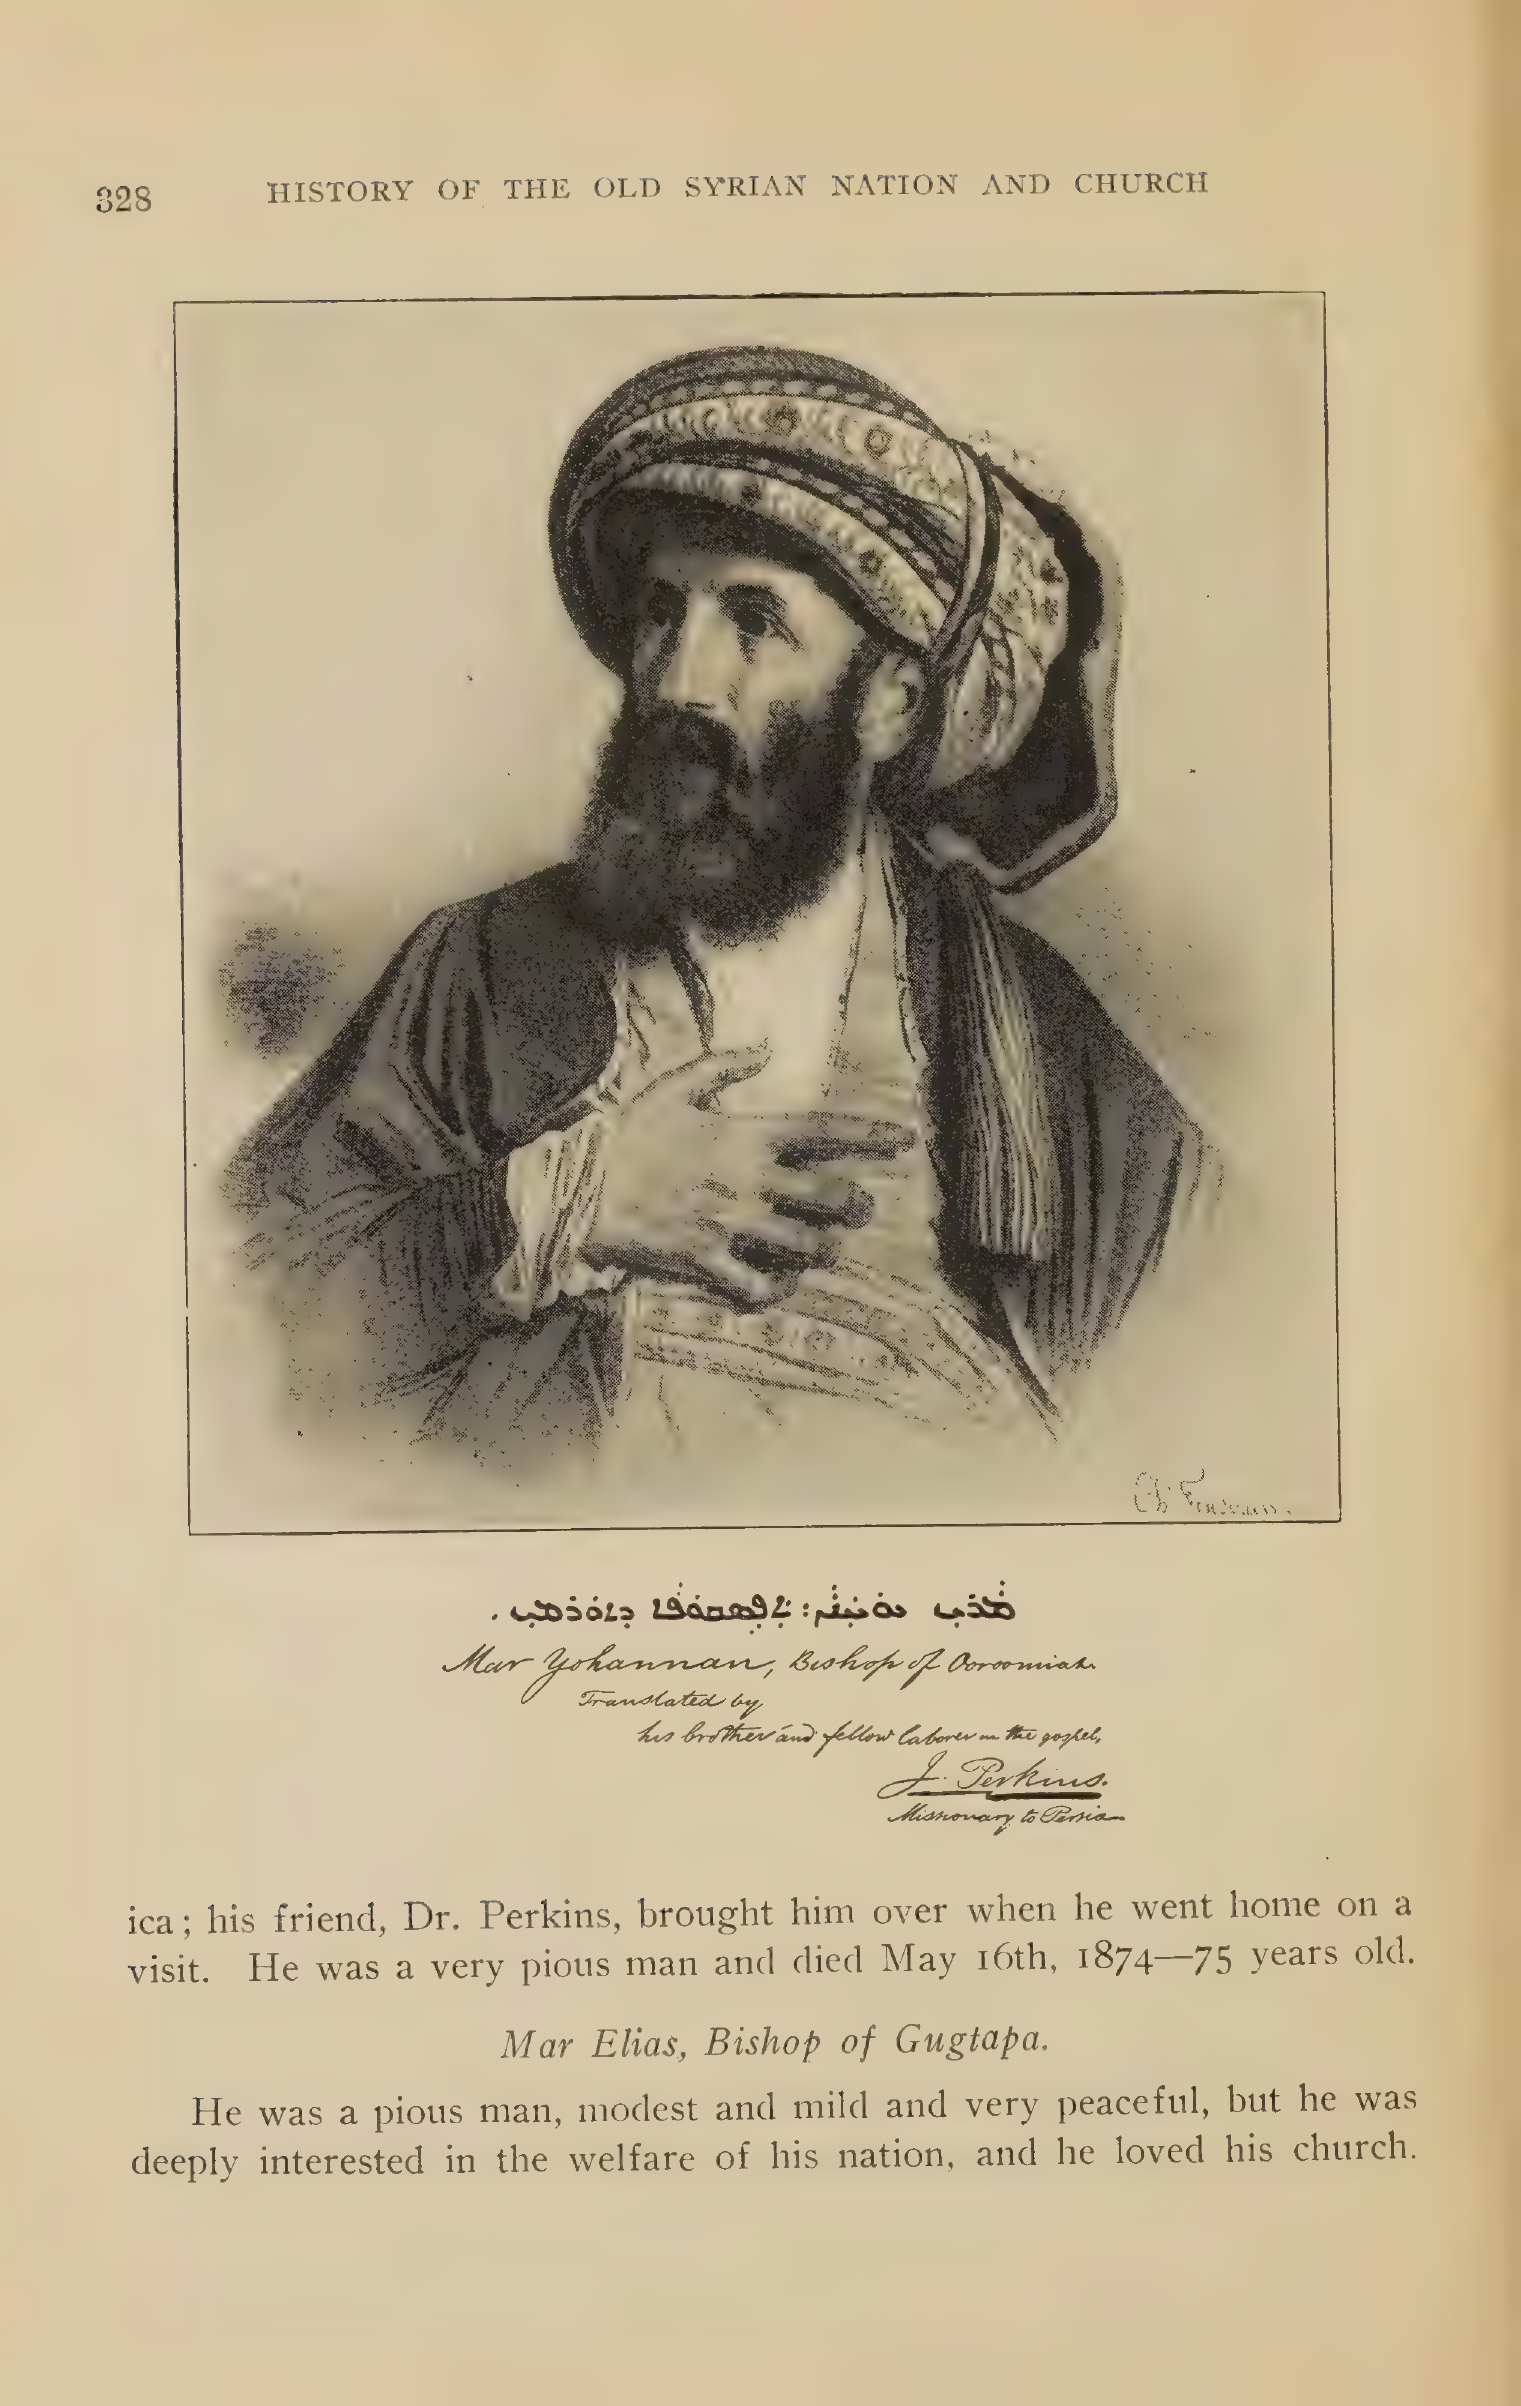 328
HISTORY OF THE OLD SYRIAN NATION AND CHURCH
ܡܵܪܝ ܝܘܿܚܲܢܵܢ: ܐܸܦܸܣܩܘܿܦܵܐ ܕܐܘܿܪܡܝ.
Mar Yohannan, Bishop of Ooroomiah.
Translated by
his brother and fellow laborer in the gospel,
J. Perkins.
Missionary to Persia
ica; his friend, Dr. Perkins, brought him over when he went home on a
visit. He was a very pious man and died May 16th, 1874—75 years old.
Mar Elias, Bishop of Gugtapa.
He was a pious man, modest and mild and very peaceful, but he was
deeply interested in the welfare of his nation, and he loved his church.